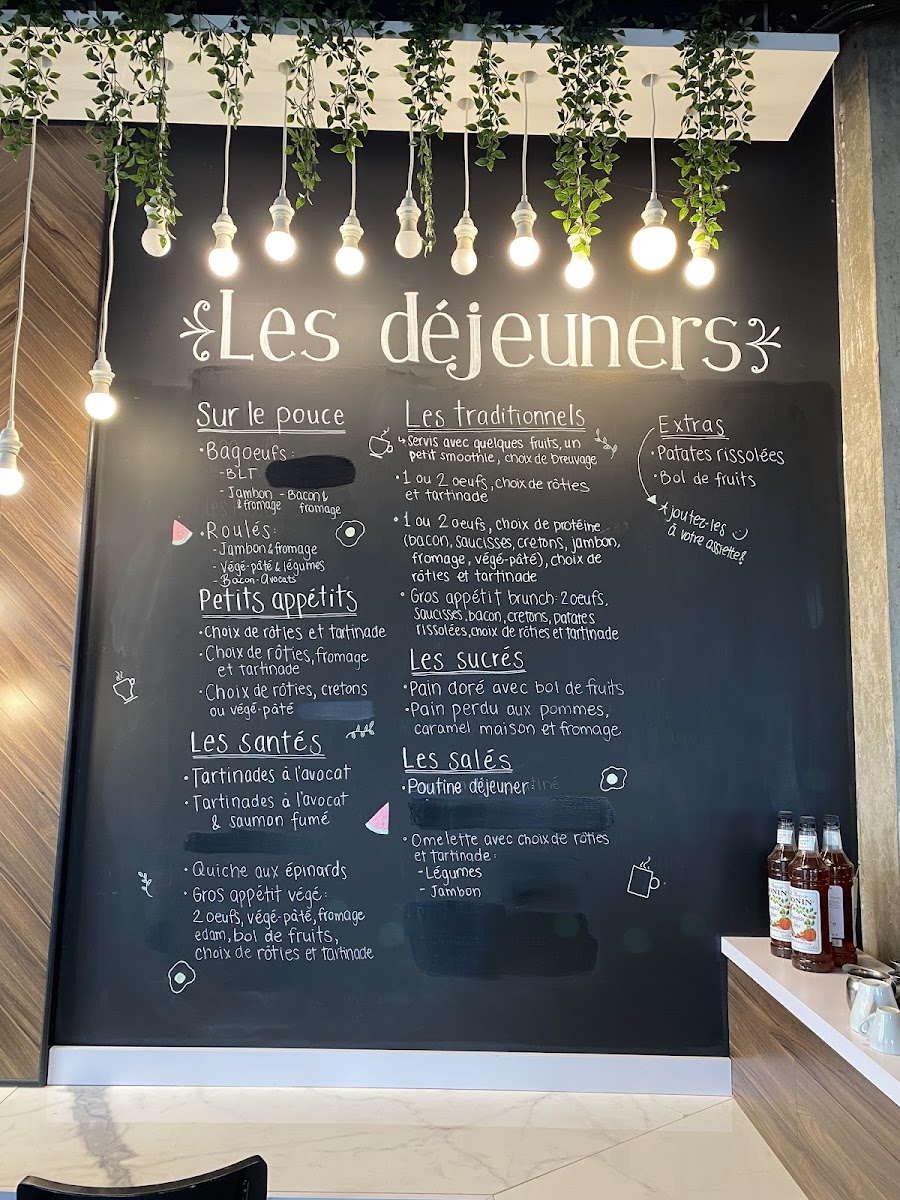 Les déjeuners
Sur le pouce
• Bagoeufs:
- BLT
- Jambon & fromage
- Bacon & fromage
• Roulés:
- Jambon & fromage
- Végé-pâté & légumes
- Bacon-Avocats
Petits appétits
• Choix de rôties et tartinade
• Choix de rôties, fromage
et tartinade
• Choix de rôties, cretons
ou végé-pâté
Les santés
• Tartinades à l'avocat
• Tartinades à l'avocat
& saumon fumé
• Quiche aux épinards
• Gros appétit végé:
2 oeufs, végé-pâté, fromage
edam, bol de fruits,
choix de rôties et tartinade
Les traditionnels
↳ Servis avec quelques fruits, un
petit smoothie, choix de breuvage
• 1 ou 2 oeufs, choix de rôties
et tartinade
• 1 ou 2 oeufs, choix de protéine
(bacon, saucisses, cretons, jambon,
fromage, végé-pâté), choix de
rôties et tartinade
• Gros appétit brunch: 2 oeufs,
saucisses, bacon, cretons, patates
rissolées, choix de rôties et tartinade
Les sucrés
• Pain doré avec bol de fruits
• Pain perdu aux pommes,
caramel maison et fromage
Les salés
• Poutine déjeuner:
• Omelette avec choix de rôties
et tartinade:
- Légumes
- Jambon
Extras
• Patates rissolées
• Bol de fruits
Ajoutez-les :)
à votre assiette!
MONIN